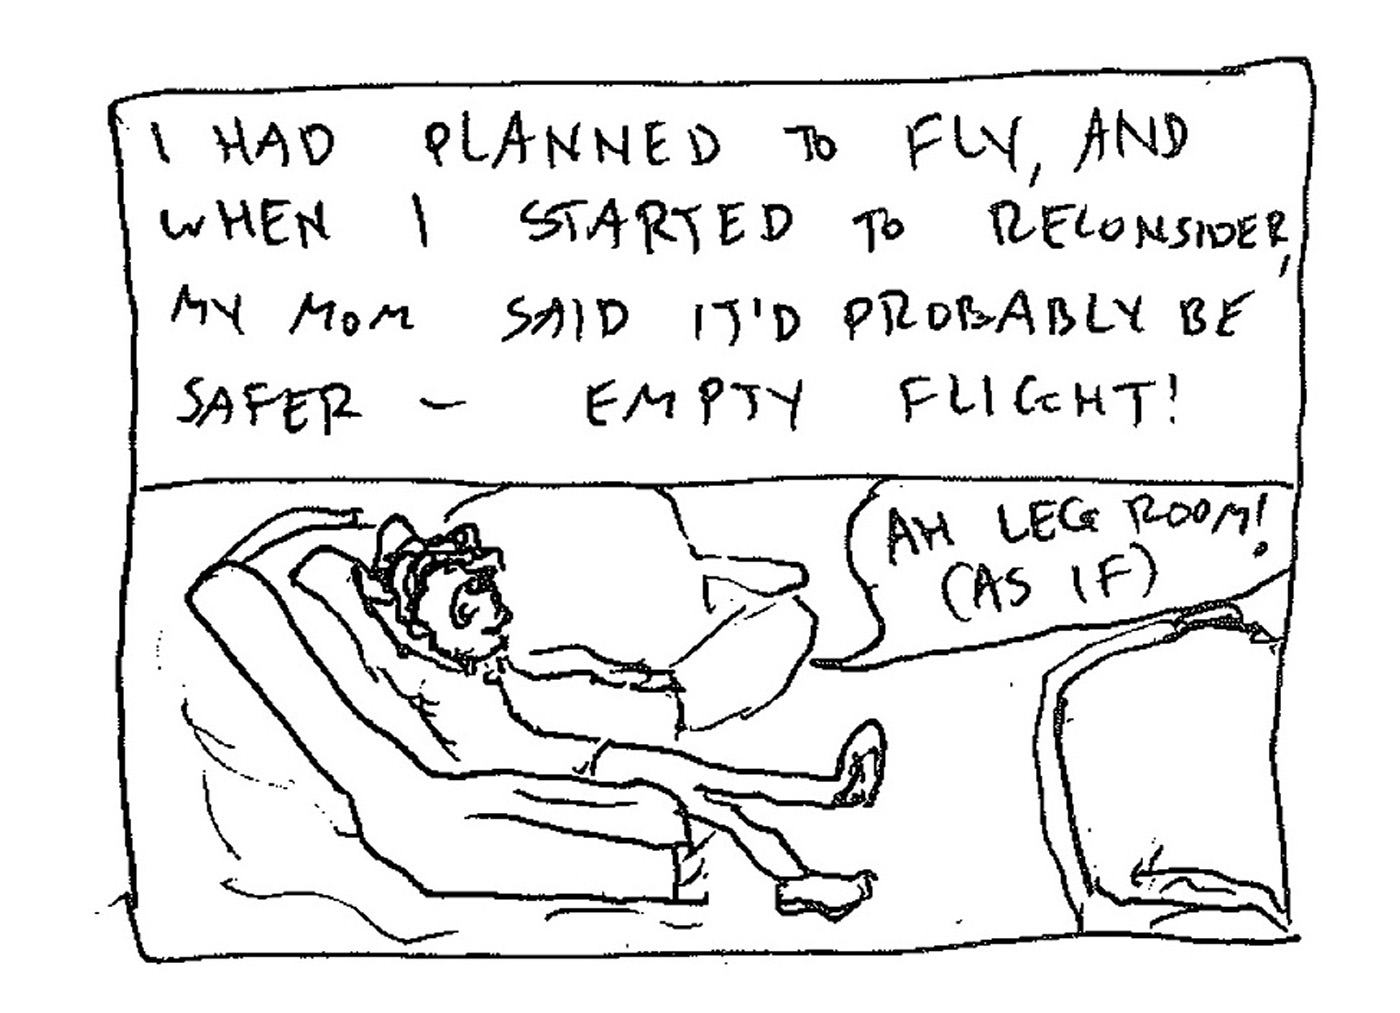 I HAD PLANNED TO FLY, AND
WHEN I STARTED TO RECONSIDER,
MY MOM SAID IT'D PROBABLY BE
SAFER – EMPTY FLIGHT!
AH LEG ROOM!
(AS IF)